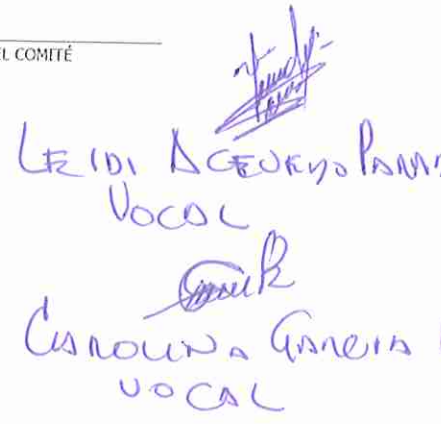 EL COMITÉ
LEIDI ACEVEDO PARRA
VOCAL
CAROLINA GARCIA
VOCAL